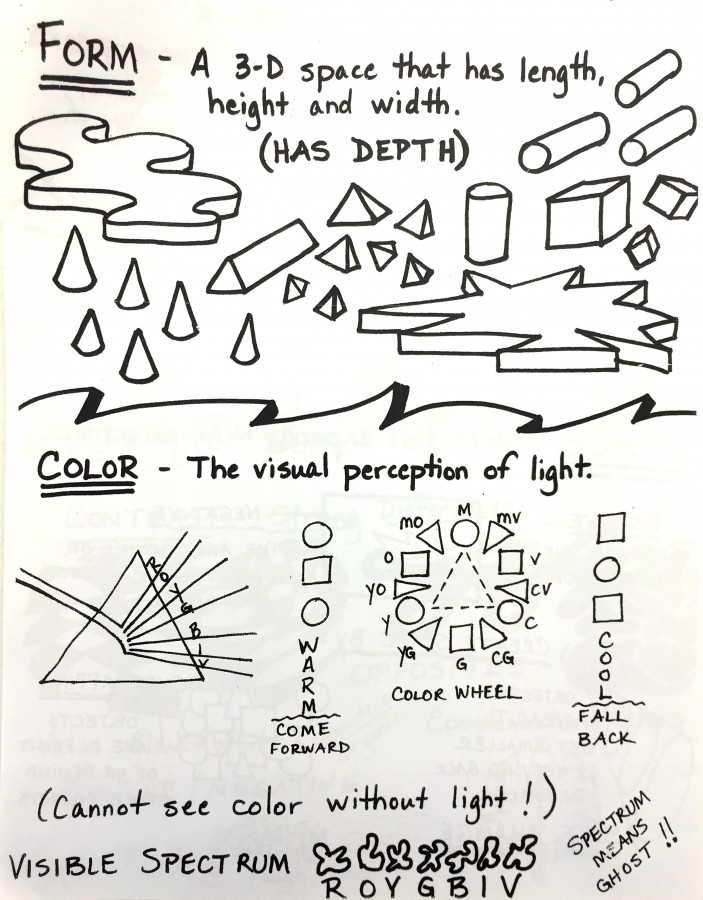 FORM - A 3-D space that has length,
height and width.
(HAS DEPTH)
COLOR - The visual perception of light.
R
O
Y
G
B
I
V
WARM
COME
FORWARD
M
MV
V
CV
C
CG
G
YG
Y
YO
O
MO
COLOR WHEEL
COOL
FALL
BACK
(Cannot see color without light!)
SPECTRUM
MEANS
GHOST!!
VISIBLE SPECTRUM
R O Y G B I V